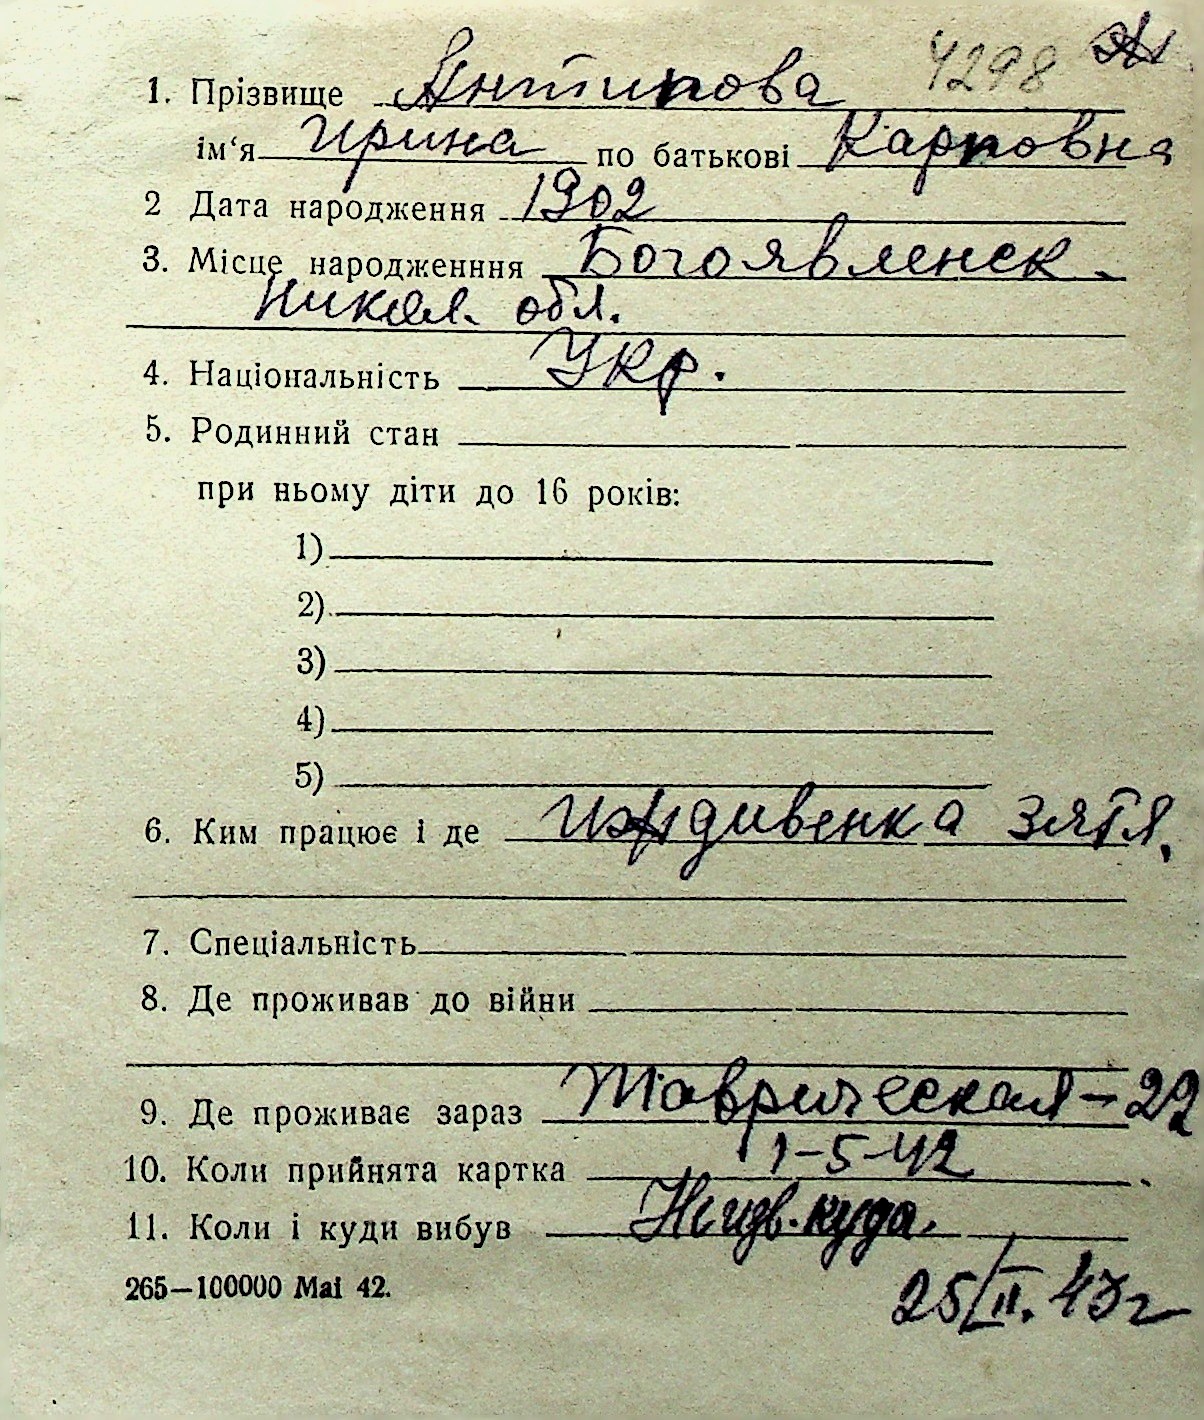 4298
1. Прізвище Антипова
ім‘я Ирина по батькові Карповна
2 Дата народження 1902
3. Місце народженння Богоявленск
Никол. обл.
4. Національність Укр.
5. Родинний стан
при ньому діти до 16 років:
1)
2)
3)
4)
5)
6. Ким працює і де иждивенка зятя.
7. Спеціальність
8. Де проживав до війни
9. Де проживає зараз Таврическая - 22
10. Коли прийнята картка 1-5-42
11. Коли і куди вибув куда.
265—100000 Mai 42.
25/II. 43 г